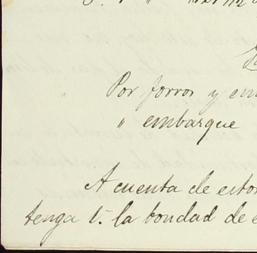 Por forros y em
" embarque
A cuenta de estos
tenga V. la bondad de e